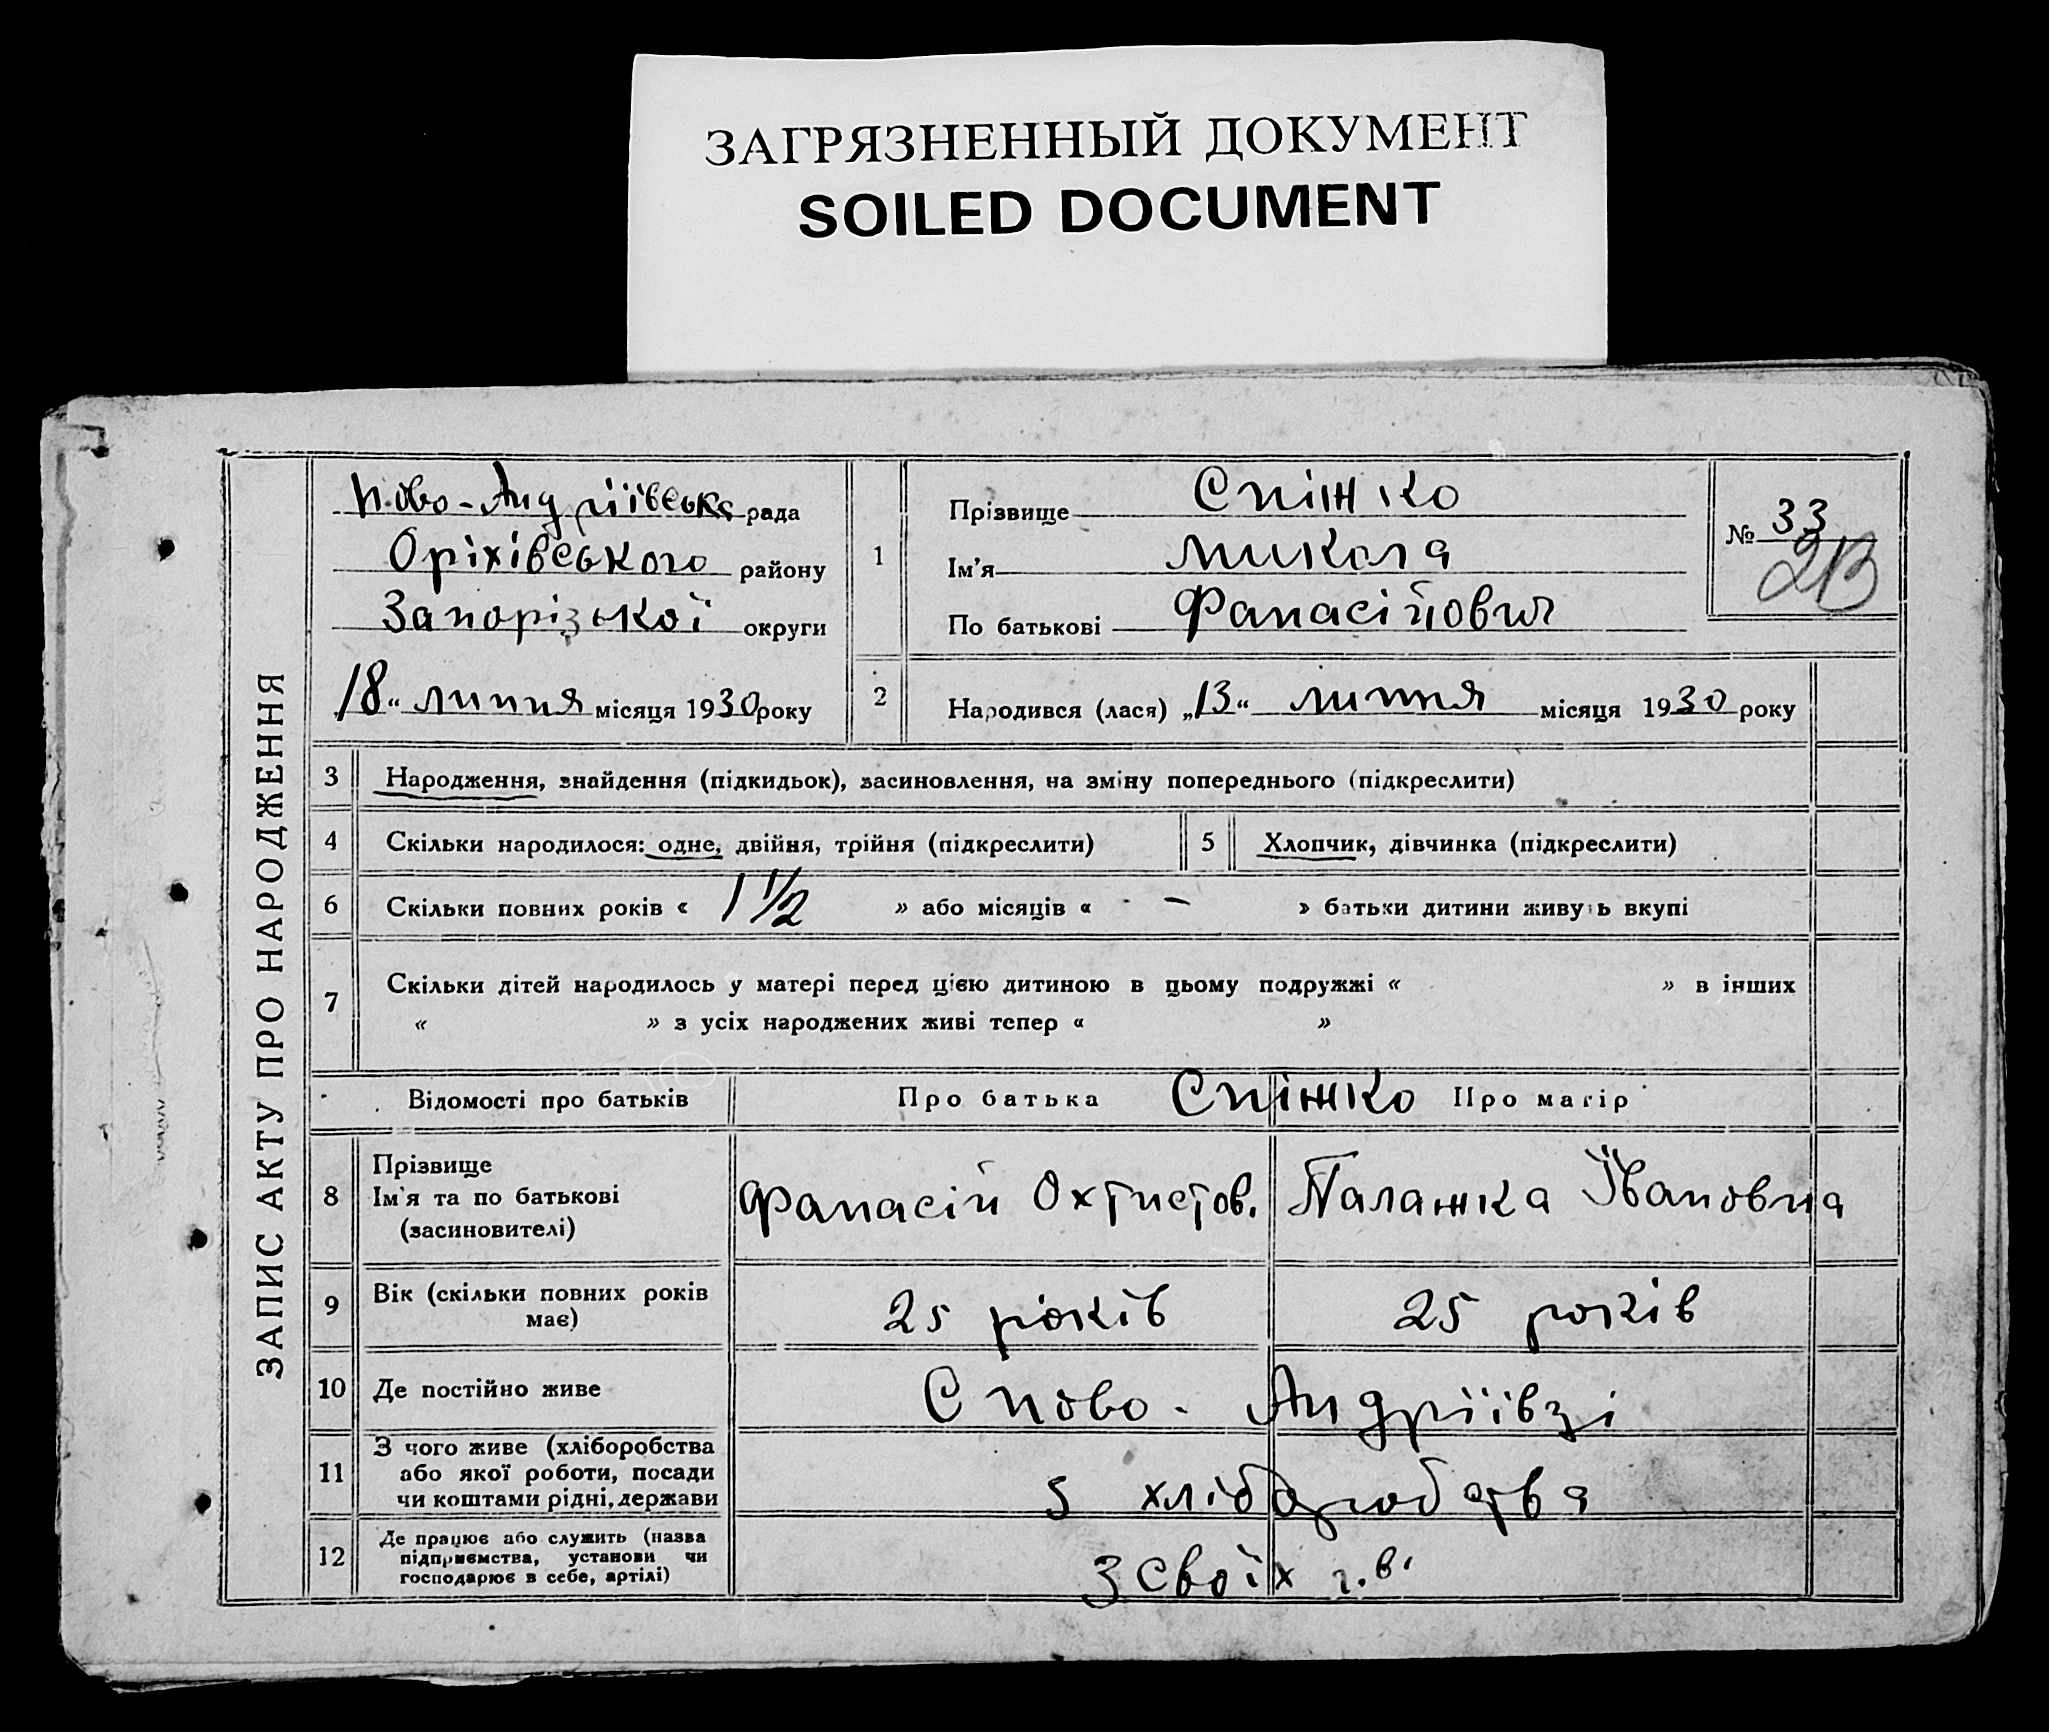 ЗАГРЯЗНЕННЫЙ ДОКУМЕНТ
SOILED DOCUMENT
ЗАПИС АКТУ ПРО НАРОДЖЕННЯ
Ново-Андріївська рада
Оріхівського району
Запорізької округи
18 “ липня місяця 1930 року
1
Прізвище Сніжко
Ім'я Микола
По батькові Фанасійович
№ 33
2
Народився (лася) „13“ липня місяця 1930 року
3 Народження, знайдення (підкидьок), засиновлення, на зміну попереднього (підкреслити)
4 Скільки народилося: одне, двійня, трійня (підкреслити) 5 Хлопчик, дівчинка (підкреслити)
6 Скільки повних років « 1 1/2 » або місяців « – » батьки дитини живуть вкупі
7 Скільки дітей народилось у матері перед цією дитиною в цьому подружжі « » в інших
« » з усіх народжених живі тепер « »
Відомості про батьків Про батька Сніжко Про матір
8 Прізвище
Ім'я та по батькові
(засиновителі)
Фанасій Охтистов. Палажка Івановна
9 Вік (скільки повних років
має)
25 років 25 років
10 Де постійно живе С Ново-Андріївзі
11 З чого живе (хліборобства
або якої роботи, посади
чи коштами рідні, держави
s хліборобства
12 Де працює або служить (назва
підприємства, установи чи
господарює в себе, артілі)
З своїх г.в.